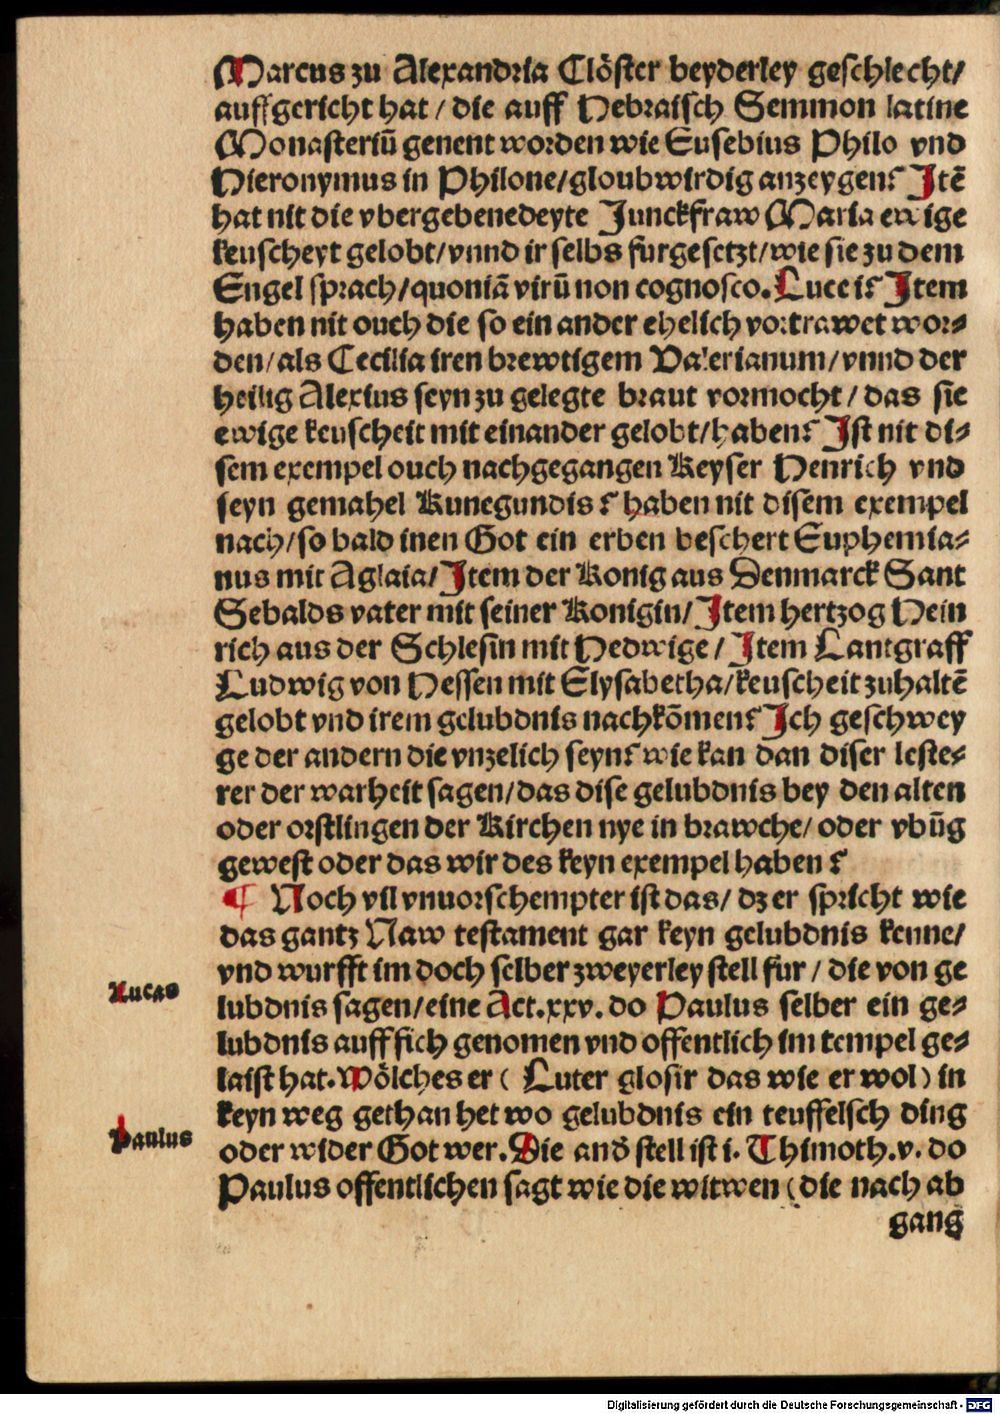 Marcus zu Alexandria Clöster beyderley geschlecht/
auffgericht hat / die auff Hebraisch Semmon latine
Monasteriū genent worden wie Eusebius Philo vnd
Hieronymus in Philone/gloubwirdig anzeygen? Itē
hat nit die vbergebenedeyte Junckfraw Maria ewige
keuscheyt gelobt/vnnd ir selbs furgesetzt/wie sie zu dem
Engel sprach/quoniā virū non cognosco. Luce i? Item
haben nit ouch die so ein ander ehelich vortrawet wor-
den/als Cecilia iren brewtigem Valerianum/vnnd der
heilig Alexius seyn zu gelegte braut vormocht/das sie
ewige keuscheit mit einander gelobt/haben? Ist nit di-
sem exempel ouch nachgegangen Keyser Henrich vnd
seyn gemahel Kunegundis? haben nit disem exempel
nach/so bald inen Got ein erben beschert Euphemia-
nus mit Aglaia/Item der Konig aus Denmarck Sant
Sebalds vater mit seiner Konigin/Item hertzog Hein
rich aus der Schlesin mit Hedwige/Item Lantgraff
Ludwig von Hessen mit Elysabetha/keuscheit zuhaltē
gelobt vnd irem gelubdnis nachkōmen? Ich geschwey
ge der andern die vnzelich seyn? wie kan dan diser leste-
rer der warheit sagen/das dise gelubdnis bey den alten
oder orstlingen der Kirchen nye in brawche/oder vbūg
gewest oder das wir des keyn exempel haben?
¶ Noch vil vnuorschempter ist das/dz er spricht wie
das gantz Naw testament gar keyn gelubdnis kenne/
vnd wurfft im doch selber zweyerley stell fur/die von ge
Lucas
lubdnis sagen/eine Act.xxv. do Paulus selber ein ge-
lubdnis auff sich genomen vnd offentlich im tempel ge-
laist hat. Wölches er (Luter glosir das wie er wol) in
keyn weg gethan het wo gelubdnis ein teuffelsch ding
Paulus
oder wider Got wer. Die and̄ stell ist i. Thimoth.v. do
Paulus offentlichen sagt wie die witwen (die nach ab
gang
Digitalisierung gefördert durch die Deutsche Forschungsgemeinschaft - DFG